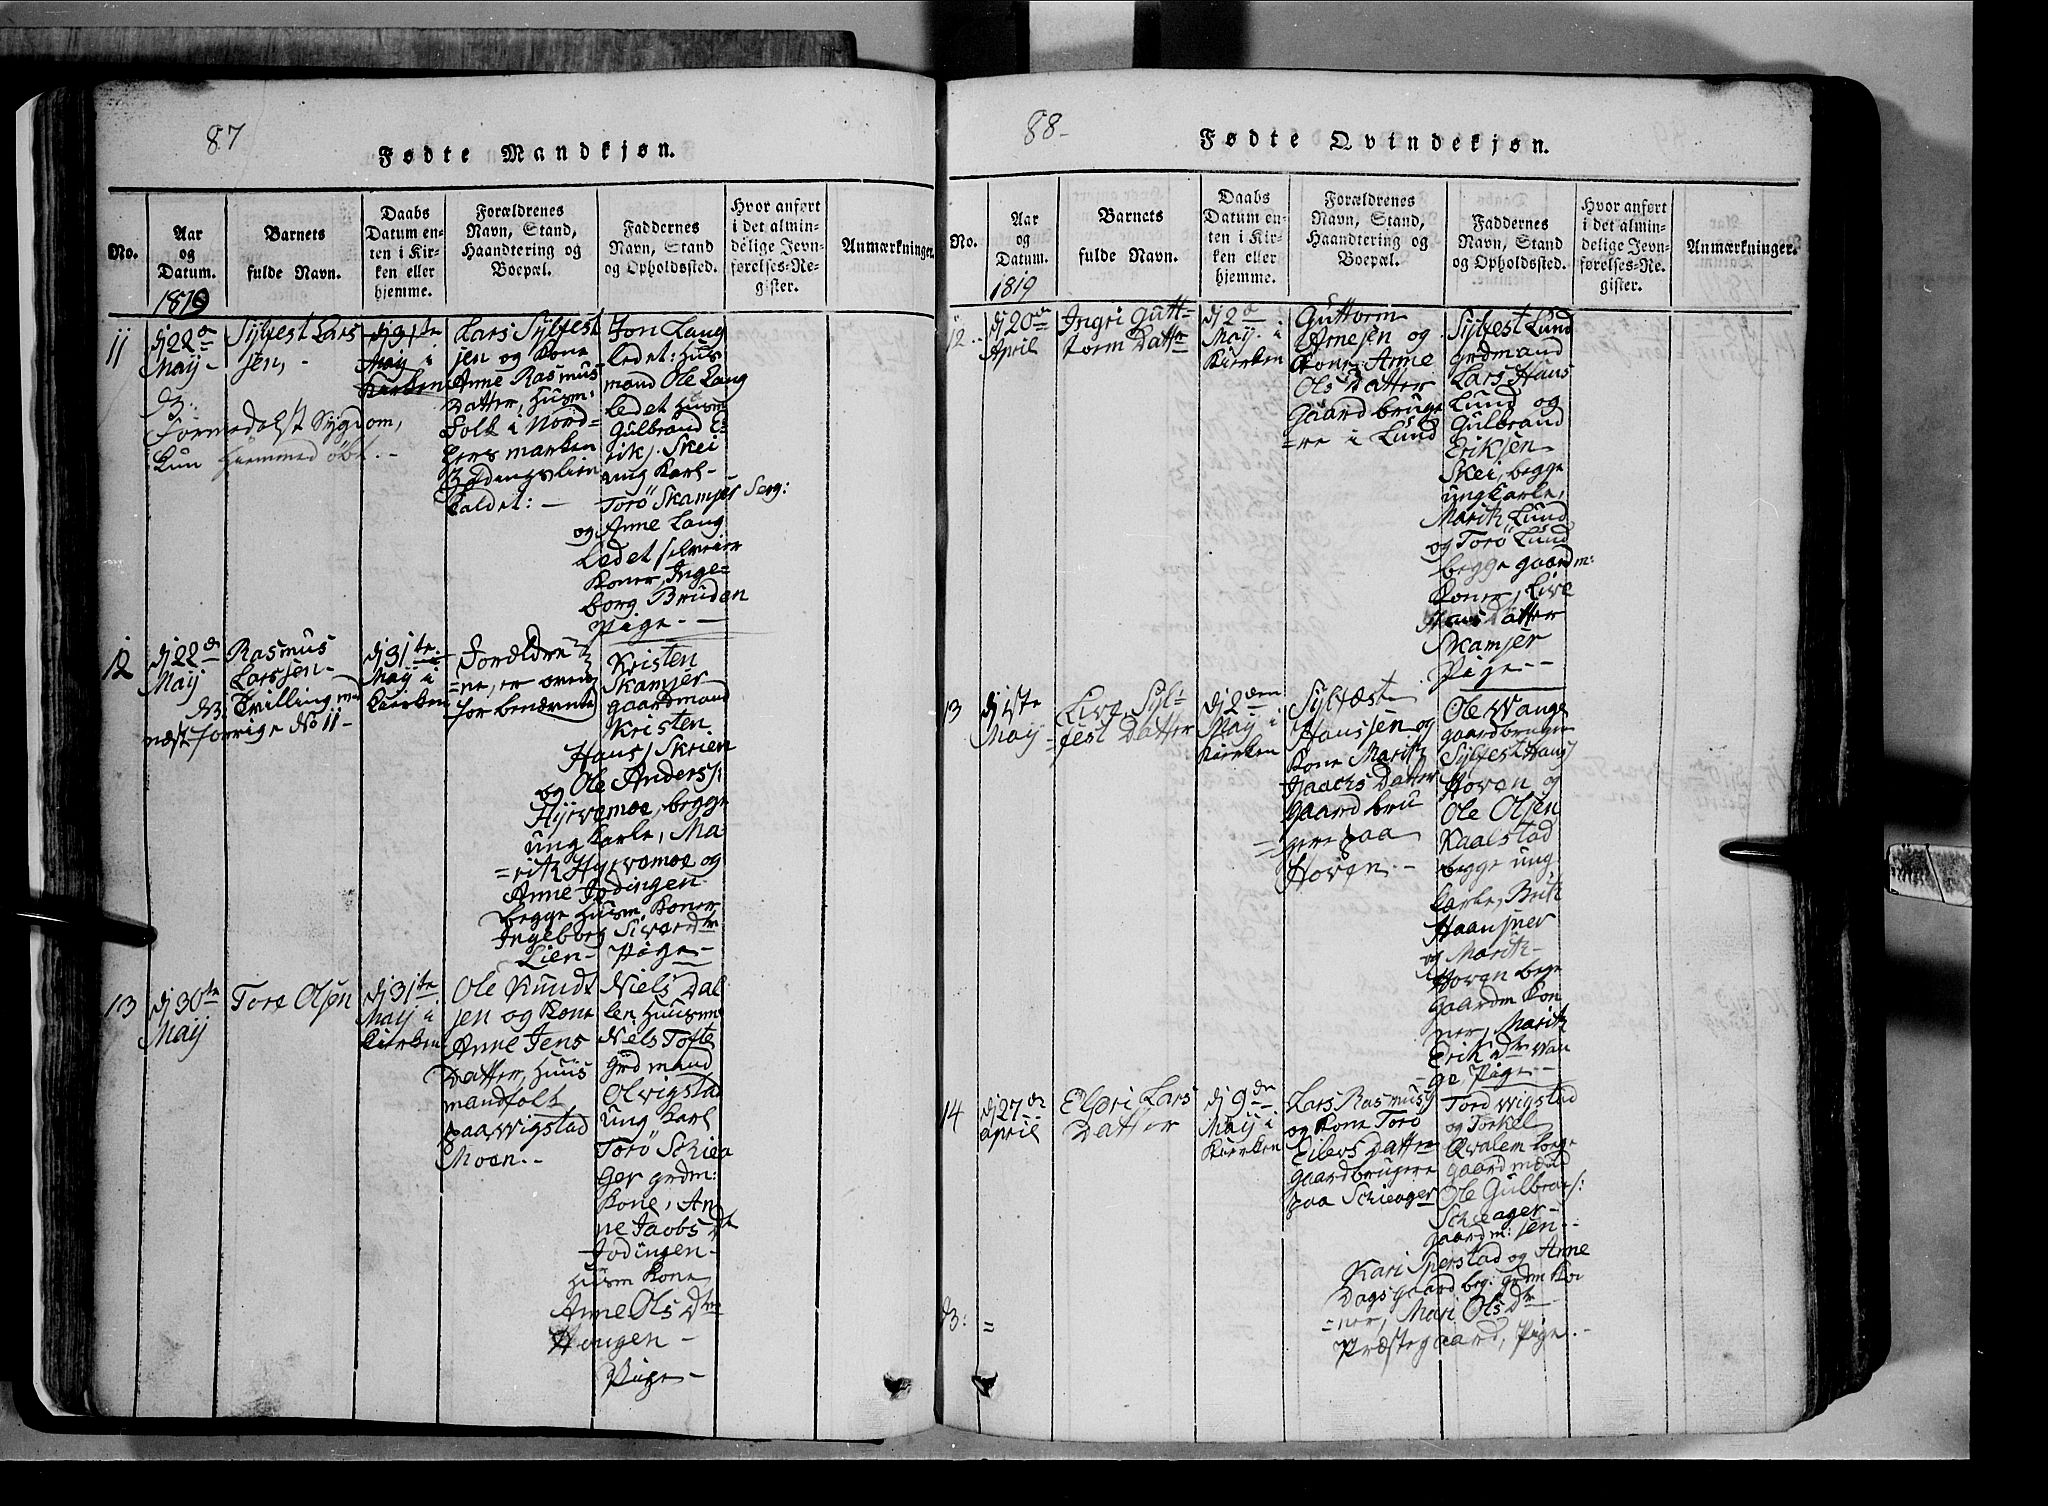 87
Fødte Mandkjøn.
No.
Aar
og
Datum.
1819
Barnets
fulde Navn.
Daabs
Datum en-
ten i Kir-
ken eller
hjemme.
Forældrenes
Navn, Stand,
Haandtering og
Boepæl.
Faddernes
Navn, Stand
og Opholdssted.
Hvor anført
i det almin-
delige Jevn-
førelses-Re-
gister.
Anmærkninger.
11
dj 22de
Maij -
Sylfest Lars
sen, -
dj 31te
Maij i
Kierken
Formedelst Sygdom,
Kun hiemmedøbt. -
Lars Sylfest
sen og Kone
Anne Rasmus
Datter, Husm:
Folk i Nord-
lers marken
kaldet: -
Jon Lang
ledet: Hus
mand Ole Lang
ledet Husm
Gulbrand E-
riks. Skei
ung Karl -
Torö Skamser Serg:
og Anne Lang
ledet selveier
Koner, Inge-
borg Brudan
Pige - -
12
dj 22de
Maij
Rasmus
Larssen -
Tvilling med
næst forrige No 11 -
dj 31te
Maij i
Kierken
Forældre
=ne, er oven
for benævnte
Kristen
Skamser
gaardmand
Kristen
Hanss Skrien
og Ole Anderss:
Hyrvemoe, begge
ung Karle, Ma
=rit Hyrvemoe og
Anne Jodingen
begge Husm. Koner
Ingeborg Siverdtr
Lien - Pige -
13
dj 30te
Maij
Tore Olsen
dj 31te
Maij i
Kierken
Ole Knudt
sen og Kone
Anne Jens
Datter, Huus
mandfolk
paa Wigstad
Moen. -
Niels Dal
len Huusm
Niels Tofte
Grdmand
Ol Wigstad
ung Karl
Torö Schiea
ger grdm:
Kone, An
ne Jacobs Dt
Jodingen -
Husm Kone
Anne Ols Dtr
Haugen -
Pige -
88 -
Fødte Qvindekjøn.
No.
Aar
og
Datum.
1819
Barnets
fulde Navn.
Daabs
Datum en-
ten i Kir-
ken eller
hjemme.
Forældrenes
Navn, Stand,
Haandtering og
Boepæl.
Faddernes
Navn, Stand
og Opholdssted.
Hvor anført
i det almin-
delige Jevn-
førelses-Re-
gister.
Anmærkninger.
12
dj 20de
April
Ingri Gutt-
torm Dattr
dj 2de
Maij i
Kierken
Guttorm
Arnesen og
Kone Anne
Ols Datter
Gaardbruge
=re i Lund
Sylfest Lund
grdmand
Lars Hans
Lund og
Gulbrand
Eriksen
Skei, begge
ungkarle,
Marit Lund
og Torö Lund
begge gaardm:
Koner, Live
Hans Datter
Skamser
Pige - -
13
dj 1ste
Maij
Live Syl-
fest Datter
dj 2den
Maij i
Kierken
Sylfest
Hanssen og
Kone Marit
Isachs Datter
gaardbru
=gere paa
Hoven. -
Ole Wange
gaardbruger
Sylfest Hanss
Hoven og
Ole Olsen
Kaalstad
begge ung
karle, Brit
Haansner
og Marit
Hoven bege
gaardm Kon
ner, Marit
Erik Dtr Wan
ge, Pige - -
14
dj 27de
april
Elsri Lars
Datter
dj 9de
Maij i
Kierken
Lars Rasmuss
og Kone Torö
Eilevs Datter
gaardbrugere
paa Schieager
Tord Wigstad
og Torkel
Qvalem bege
gaardmænd
Ole Gulbrans:
Schieager -
gaardm: sen - -
Kari Sperstad og Anne
Dagsgaard beg: grdm Ko
=ner, Mari Ols Dtr
Præstegaard, Pige. -